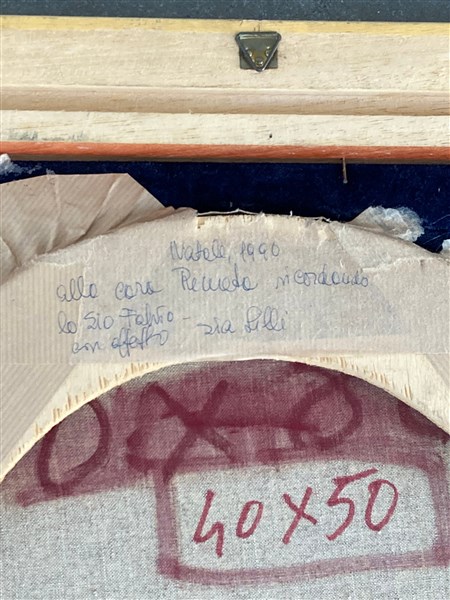 Natale, 1990
alla cara Renata ricordando
lo zio Fabio -
con affetto zia Lilli
40x50